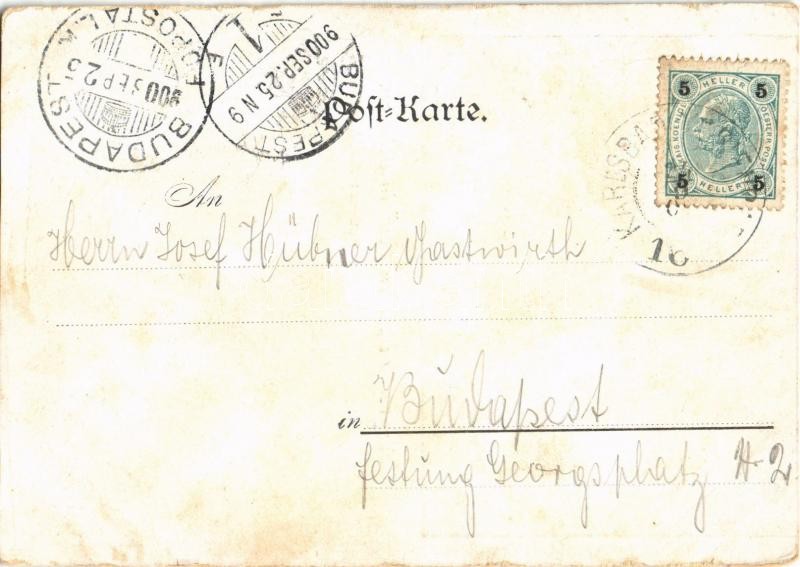 BUDAPEST
FŐPOSTA L.K.
900 SEP 25
BUDAPEST
900 SEP. 25 N 9
1
5 HELLER 5
KAIS. KOENIGL. OESTERR. POST
5 HELLER 5
KARLSBAD
Post-Karte.
An
Herrn Josef Hübner, Gastwirth
in Budapest
Festung Georgsplatz H 2